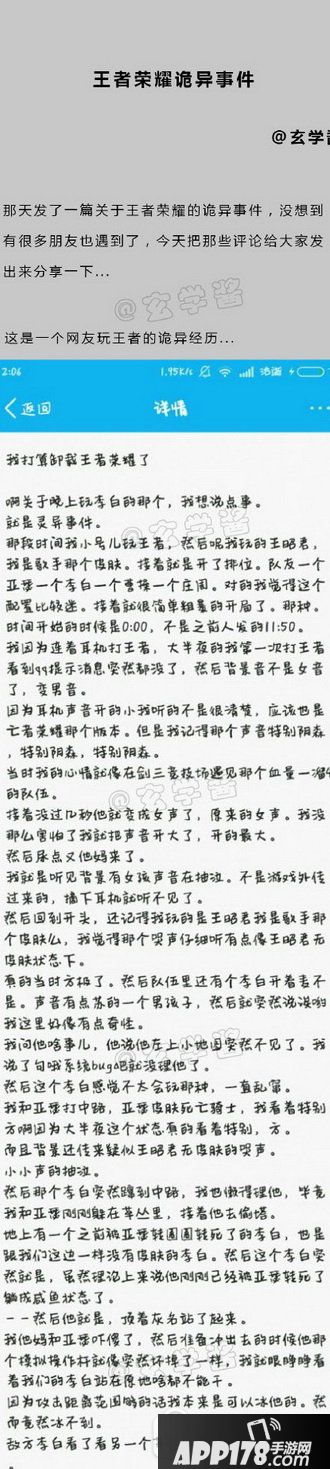 王者荣耀诡异事件
@玄学
那天发了一篇关于王者荣耀的诡异事件，没想到
有很多朋友也遇到了，今天把那些评论给大家发
出来分享一下...
@玄学酱
这是一个网友玩王者的诡异经历...
2:06
1.95K/s
返回
详情
我打算卸载王者荣耀了
啊关于晚上玩李白的那个，我想说点事。
就是灵异事件。
那段时间我小号儿玩王者，然后呢我玩的王昭君，
我是歌手那个皮肤。接着就是开了排位。队友一个
亚瑟一个李白一个曹操一个庄周。对的我觉得这个
配置比较迷。接着就很简单粗暴的开局了。那种。
时间开始的时候是0:00，不是之前人发的11:50。
我因为连着耳机打王者，大半夜的我第一次打王者
看到qq提示消息突然都没了，然后背景音不是女音
了，变男音。
因为耳机声音开的小我听的不是很清楚，应该也是
亡者荣耀那个版本。但是我记得那个声音特别阴森
，特别阴森，特别阴森。
当时我的心情就像在剑三竞技场遇见那个血量一溜
的队伍。
接着没过几秒他就变成女声了，原来的女声。我没
那么害怕了我就把声音开大了，开的最大。
然后尿点又他妈来了。
我就是听见背景有女孩声音在抽泣。不是游戏外传
过来的，摘下耳机就听不见了。
然后回到开头，还记得我玩的是王昭君我是歌手那
个皮肤么，我觉得那个哭声仔细听有点像王昭君无
皮肤状态下。
真的当时方极了。然后队伍里还有个李白开着麦不
是。声音有点苏的一个男孩子，然后就突然说诶哟
我这里好像有点奇怪。
我问他啥事儿，他说他在上小地图突然不见了。我
说了句哦系统bug吧就没理他了。
然后这个李白感觉不太会玩那种，一直乱窜。
我和亚瑟打中路，亚瑟皮肤死亡骑士，我看着特别
方啊因为大半夜这个状态真的看着特别，方。
而且背景还传来疑似王昭君无皮肤的哭声。
小小声的抽泣。
然后那个李白突然蹿到中路，我也懒得理他，毕竟
我和亚瑟刚刚躲在草丛里，接着他去偷塔。
地上有一个之前被亚瑟转圈圈转死了的李白，也是
跟我们这边一样没有皮肤的李白。然后这个李白突
然就是，虽然理论上来说他刚刚已经被亚瑟转死了
躺成咸鱼状态了。
--然后他就是，顶着灰名站了起来。
我他妈和亚瑟吓傻了，然后准备冲出去的时候他那
个模拟操作杆就像突然坏掉了一样，我就眼睁睁看
着我们的李白站在原地啥都不能干。
因为攻击距离范围够的话我本来是可以冰他的。然
而竟然冰不到。
敌方李白看了看另一个
APP178手游网